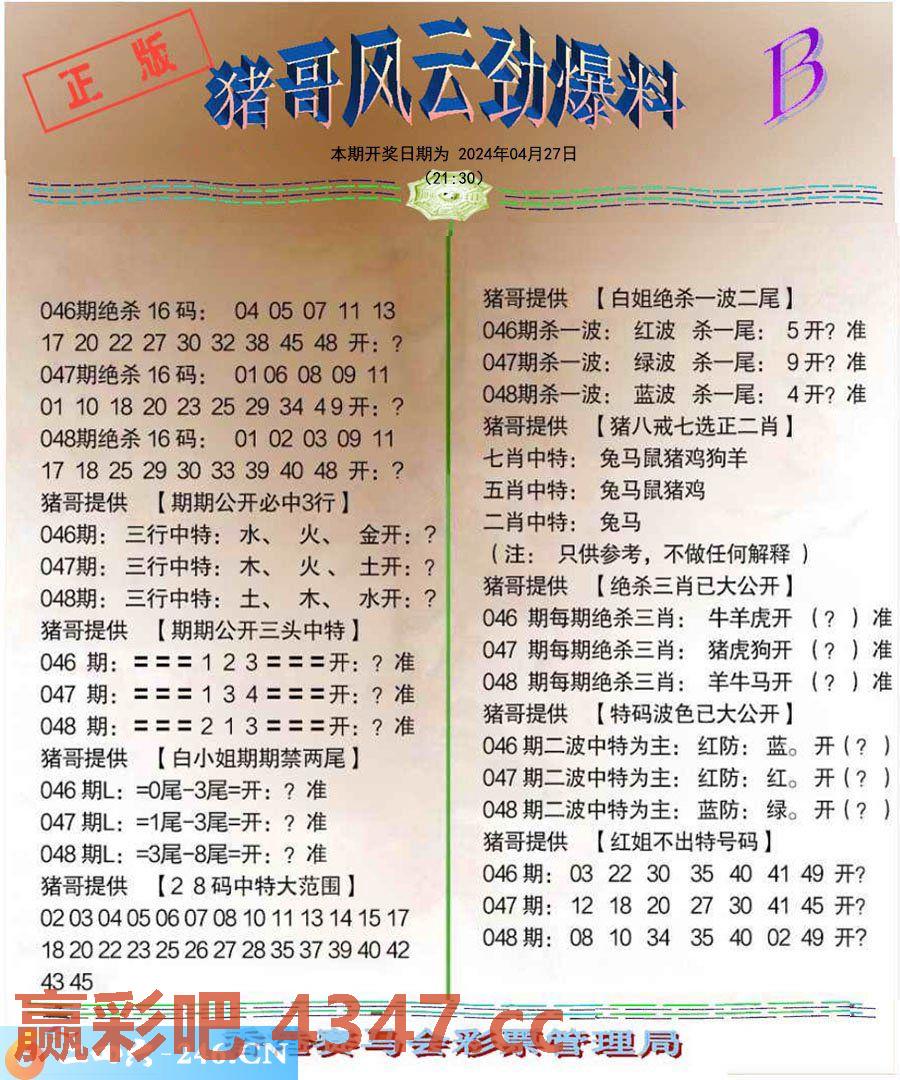 正版
猪哥风云劲爆料
B
本期开奖日期为 2024年04月27日
(21:30)
046期绝杀16码： 04 05 07 11 13
17 20 22 27 30 32 38 45 48 开：?
047期绝杀16码： 01 06 08 09 11
01 10 18 20 23 25 29 34 49 开：?
048期绝杀16码： 01 02 03 09 11
17 18 25 29 30 33 39 40 48 开：?
猪哥提供 【期期公开必中3行】
046期：三行中特：水、 火、 金开：?
047期：三行中特：木、 火、 土开：?
048期：三行中特：土、 木、 水开：?
猪哥提供 【期期公开三头中特】
046 期：===1 2 3===开：? 准
047 期：===1 3 4===开：? 准
048 期：===2 1 3===开：? 准
猪哥提供 【白小姐期期禁两尾】
046期L：=0尾-3尾=开：? 准
047期L：=1尾-3尾=开：? 准
048期L：=3尾-8尾=开：? 准
猪哥提供 【28码中特大范围】
02 03 04 05 06 07 08 10 11 13 14 15 17
18 20 22 23 25 26 27 28 35 37 39 40 42
43 45
猪哥提供 【白姐绝杀一波二尾】
046期杀一波： 红波 杀一尾： 5开? 准
047期杀一波： 绿波 杀一尾： 9开? 准
048期杀一波： 蓝波 杀一尾： 4开? 准
猪哥提供 【猪八戒七选正二肖】
七肖中特： 兔马鼠猪鸡狗羊
五肖中特： 兔马鼠猪鸡
二肖中特： 兔马
（注： 只供参考，不做任何解释）
猪哥提供 【绝杀三肖已大公开】
046 期每期绝杀三肖： 牛羊虎开 （?）准
047 期每期绝杀三肖： 猪虎狗开 （?）准
048 期每期绝杀三肖： 羊牛马开 （?）准
猪哥提供 【特码波色已大公开】
046期二波中特为主：红防：蓝。开（?）
047期二波中特为主：红防：红。开（?）
048期二波中特为主：蓝防：绿。开（?）
猪哥提供 【红姐不出特号码】
046期： 03 22 30 35 40 41 49 开?
047期： 12 18 20 27 30 41 45 开?
048期： 08 10 34 35 40 02 49 开?
赢彩吧 4347.cc
马会彩票管理局